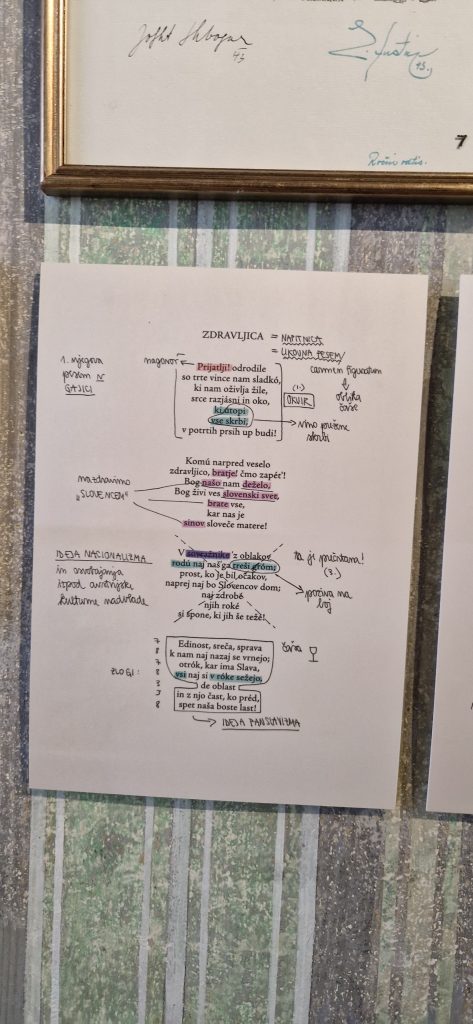 43
43.
7
Ročni odtis.
ZDRAVLJICA = NAPITNICA
= LIKOVNA PESEM
1. njegova
pesem v
GAJICI
nagovor
Prijatlji! odrodile
so trte vince nam sladkó,
ki nam oživlja žile,
srce razjásni in oko,
ki utopi
vse skrbi,
v potrtih prsih up budi!
(1.)
OKVIR
carmen figuratum
oblika
čaše
vino prežene
skrbi
Komú narpred veselo
zdravljico, bratje! čmo zapét'!
Bog našo nam deželo,
Bog živi ves slovenski svet,
brate vse,
kar nas je
sinov sloveče matere!
nazdravimo
"SLOVENCEM"
V sovražnike 'z oblakov
rodú naj naš'ga treši gróm;
prost, ko je bil očakov,
naprej naj bo Slovencov dom;
naj zdrobé
njih roké
si spone, ki jih še težé!
IDEJA NACIONALIZMA
in osvobajanja
izpod avstrijske
kulturne nadvlade
ta je prečrtana!
(2.)
poziva na
boj
Edinost, sreča, sprava
k nam naj nazaj se vrnejo;
otrók, kar ima Slava,
vsi naj si v róke sežejo,
de oblast
in z njo čast, ko préd,
spet naša boste last!
ZLOGI:
7
8
7
8
3
3
8
čaša
IDEJA PANSLAVIZMA